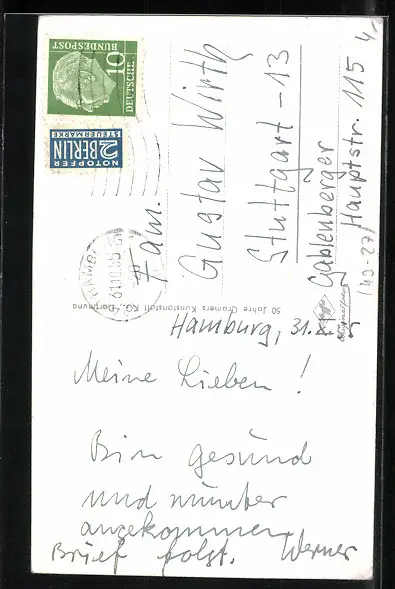 10
DEUTSCHE
BUNDESPOST
NOTOPFER
2 BERLIN
STEUERMARKE
Fam.
Gustav Wirth
Stuttgart-13
Gablenberger
Hauptstr. 115
50 Jahre Cramers Kunstanstalt KG., Dortmund
Hamburg, 31.
Meine Lieben!
Bin gesund
und munter
angekommen
Brief folgt. Werner